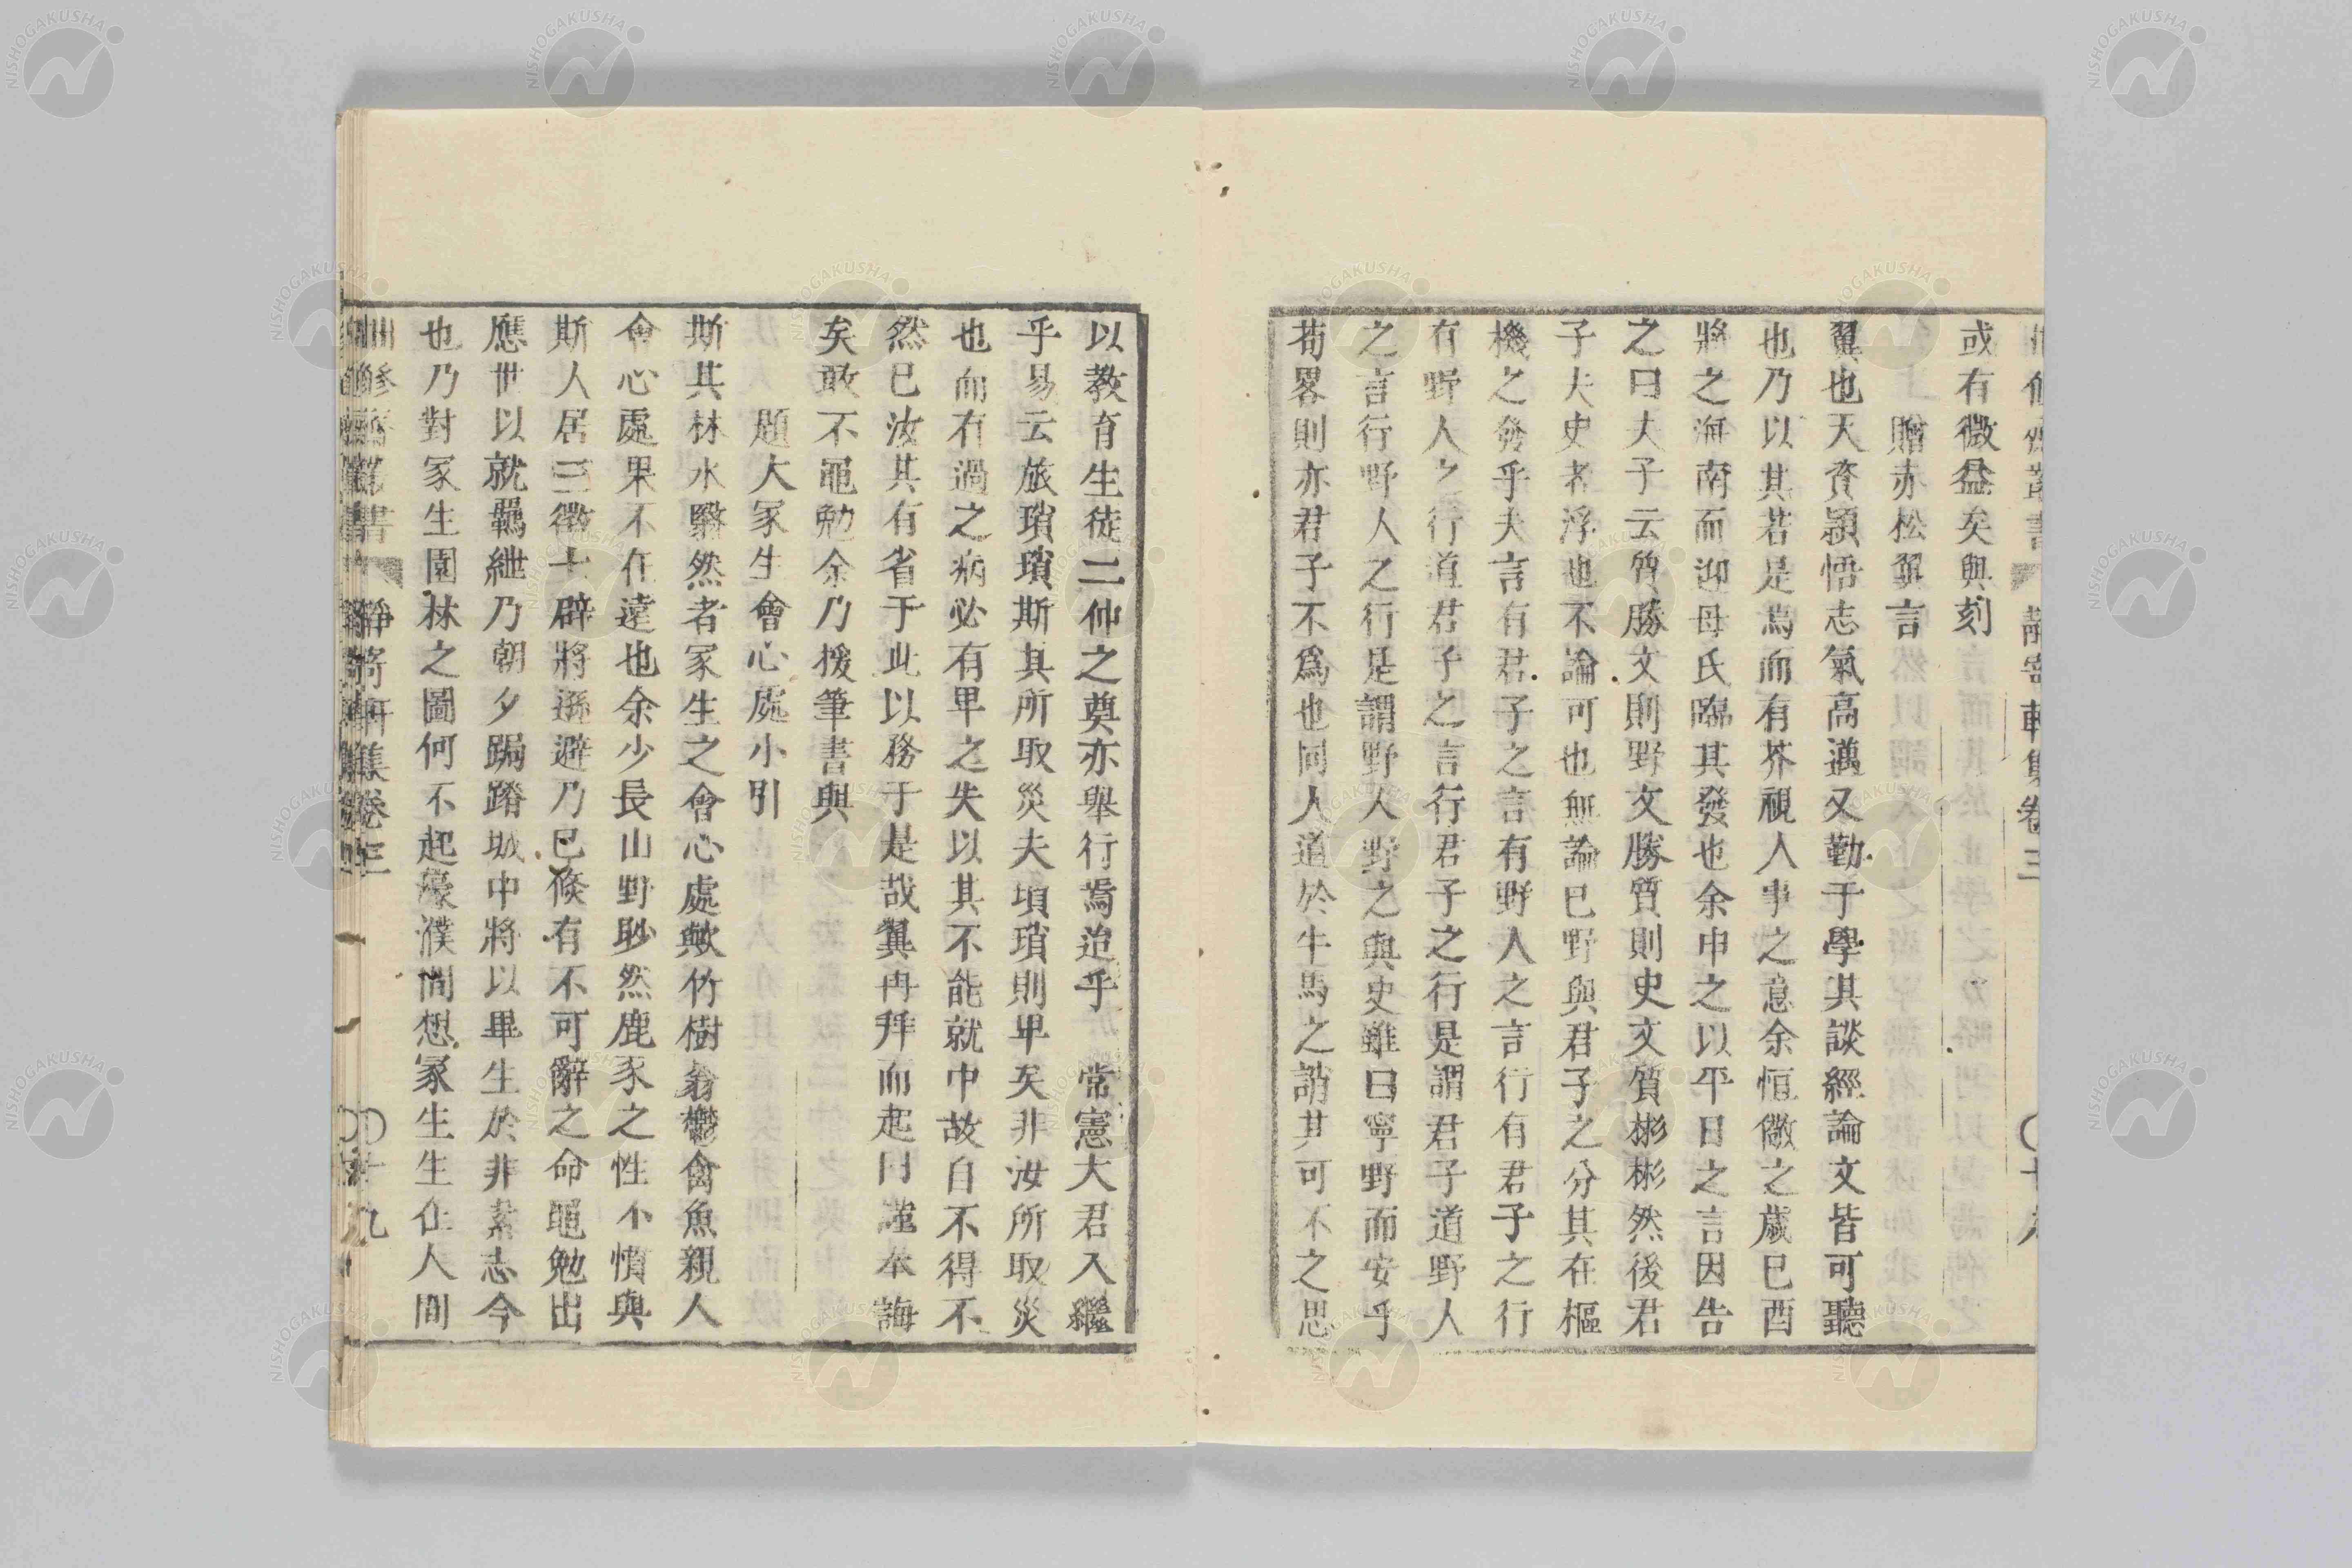 或有微益矣與刻
贈赤松翼言
翼也天資頴悟志氣高邁又勤于學其談經論文皆可聽
也乃以其若是焉而有芥視人事之意余恒儆之歲巳酉
將之海南而迎母氏臨其發也余申之以平日之言因告
之曰夫子云質勝文則野文勝質則史文質彬彬然後君
子夫史者浮也不論可也無論巳野與君子之分其在樞
機之發乎夫言有君子之言有野人之言行有君子之行
有野人之行道君子之言行君子之行是謂君子道野人
之言行野人之行是謂野人野之與史雖曰寧野而安乎
苟畧則亦君子不爲也同人道於牛馬之誚其可不之思
以教育生徒二仲之奠亦舉行焉迨乎 常憲大君入繼
乎易云旅瑣瑣斯其所取災夫瑣瑣則卑矣非汝所取災
也而有過之病必有卑之失以其不能就中故自不得不
然巳汝其有省于此以務于是哉翼再拜而起曰謹奉誨
矣敢不黽勉余乃援筆書與
題大冢生會心處小引
斯其林水翳然者冢生之會心處歟竹樹蓊鬱禽魚親人
會心處果不在遠也余少長山野眇然鹿豕之性不慣與
斯人居三徵七辟將遜避乃巳倏有不可辭之命黽勉出
應世以就羈紲乃朝夕跼蹐城中將以畢生於非素志今
也乃對冢生園林之圖何不起濠濮間想冢生生在人間
靜寄軒集卷三
十九